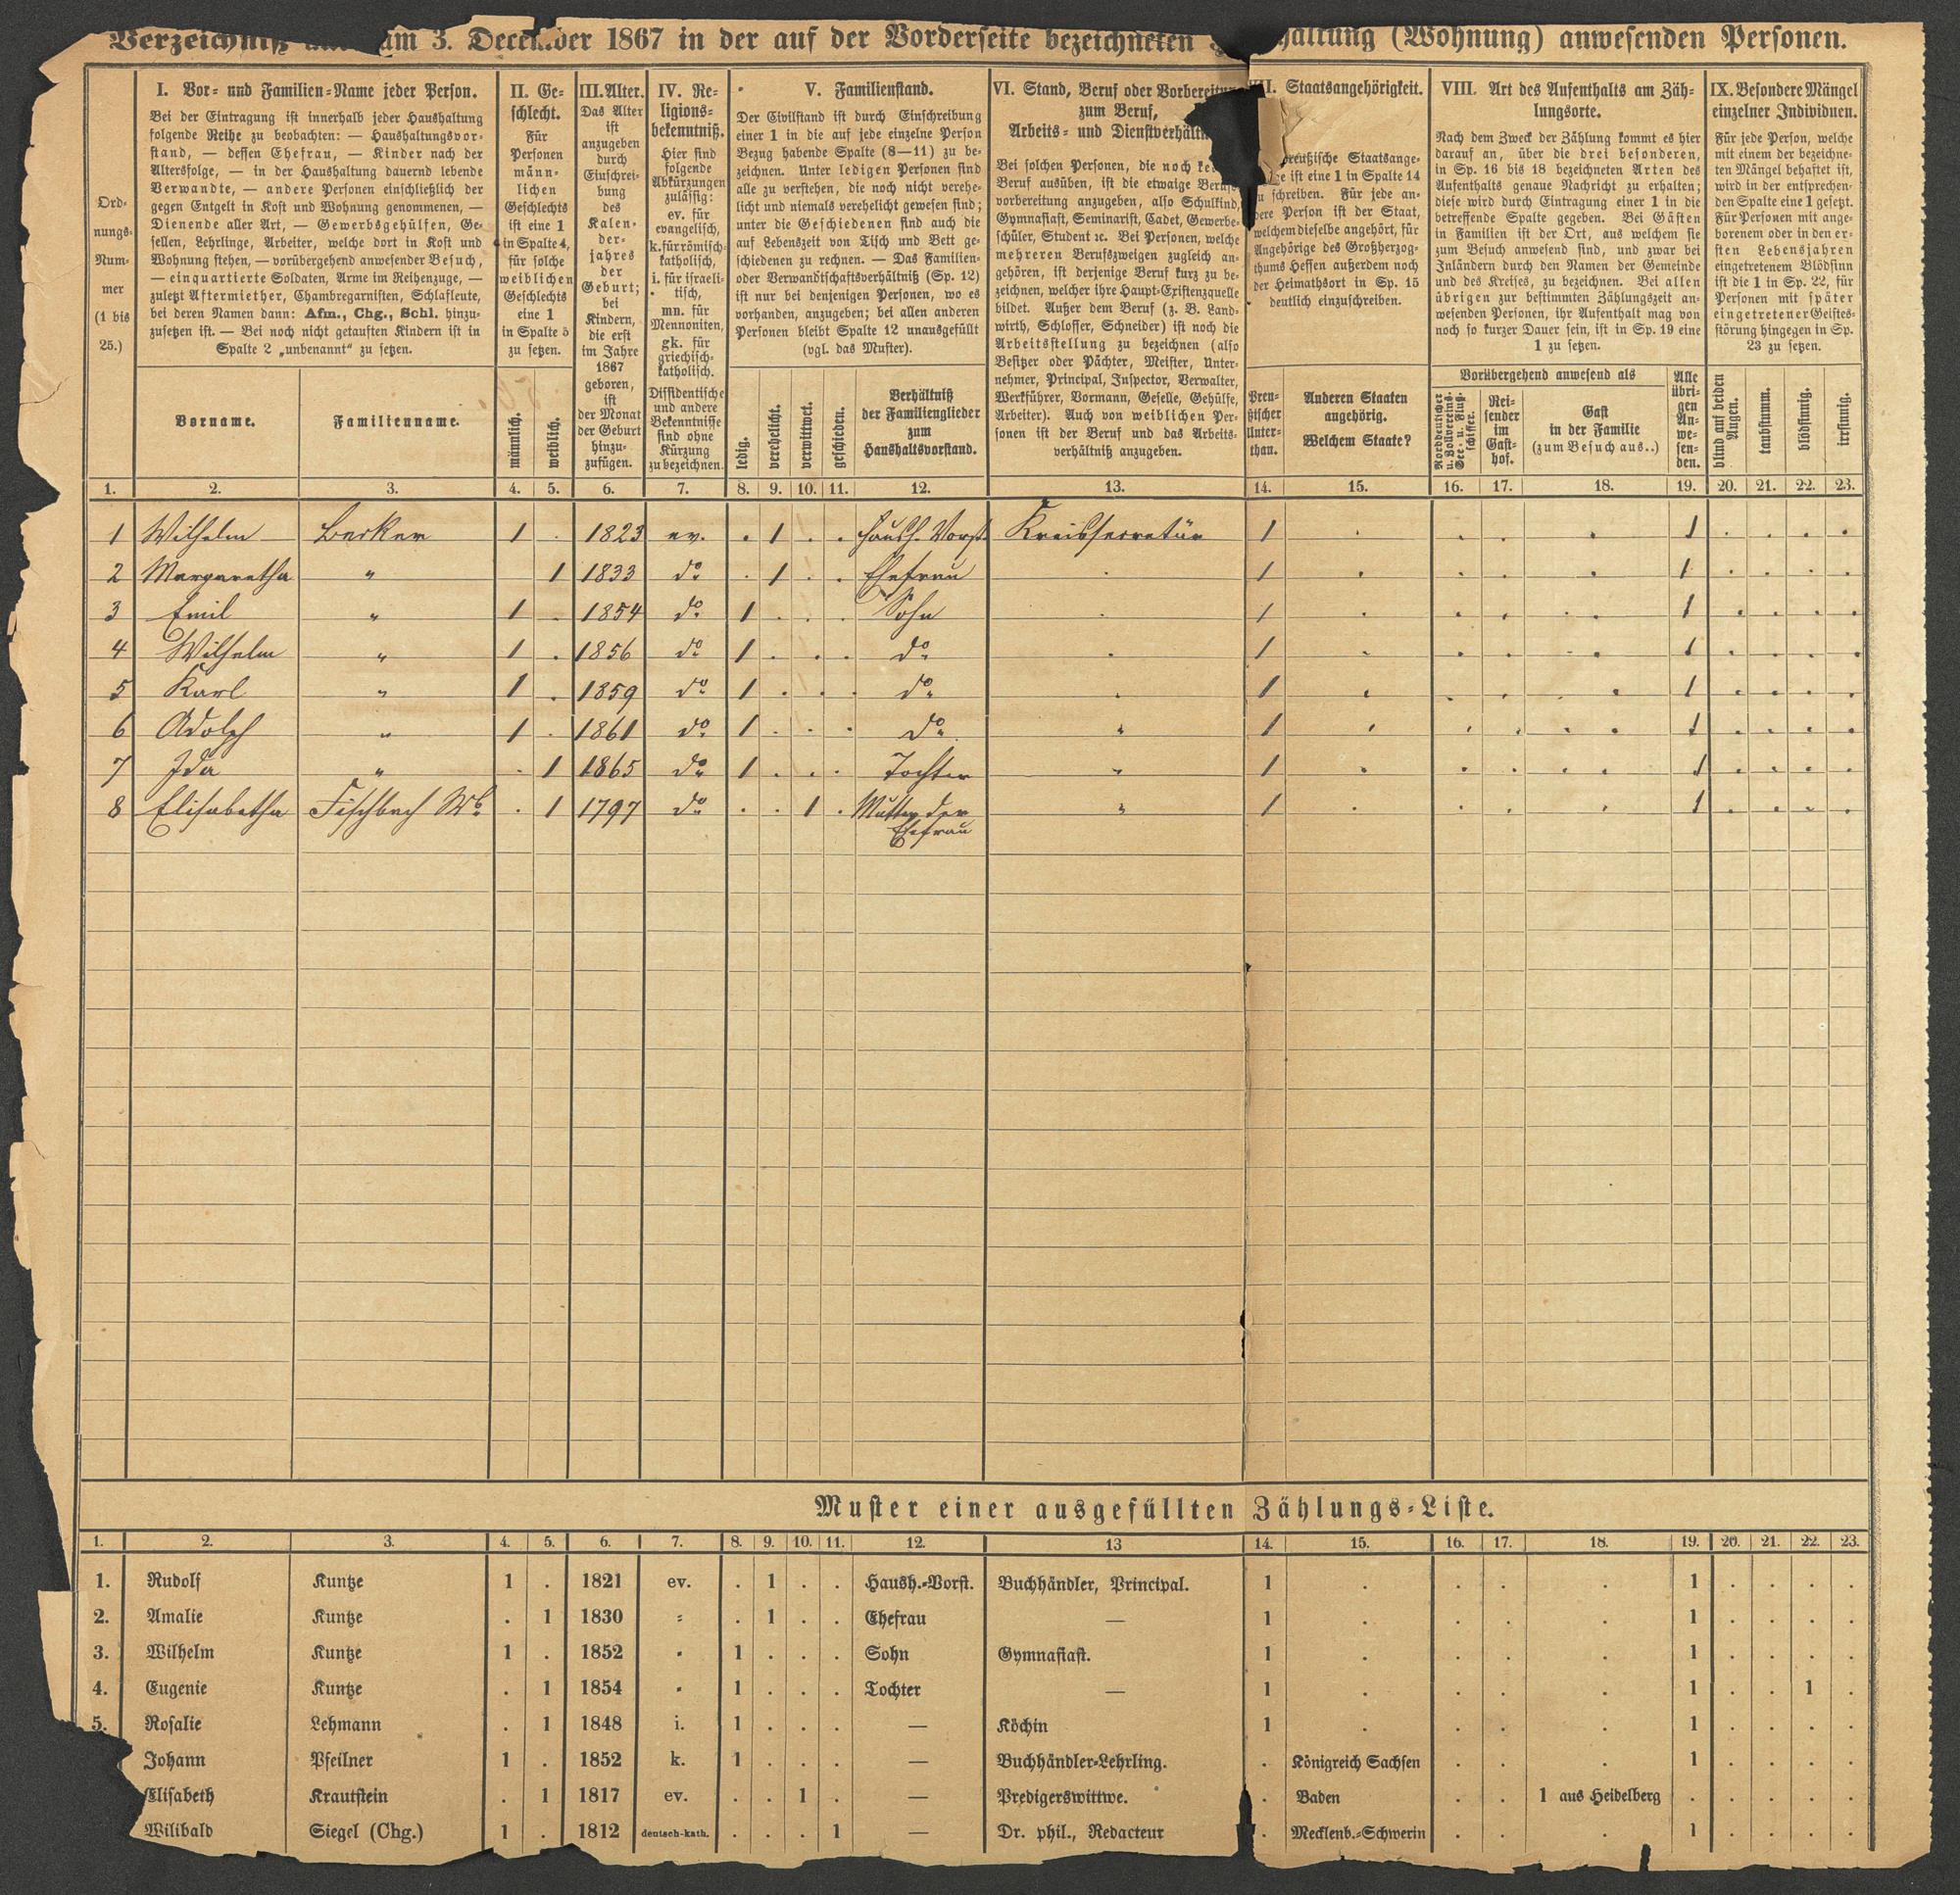 Verzeichniß am 3. December 1867 in der auf der Vorderseite bezeichneten haltung (Wohnung) anwesenden Personen.
Ord-
nungs-
Num-
mer
(1 bis
25.)
I. Vor- und Familien-Name jeder Person.
Bei der Eintragung ist innerhalb jeder Haushaltung
folgende Reihe zu beobachten: — Haushaltungsvor-
stand, — dessen Ehefrau, — Kinder nach der
Altersfolge, — in der Haushaltung dauernd lebende
Verwandte, — andere Personen einschließlich der
gegen Entgelt in Kost und Wohnung genommenen, —
Dienende aller Art, — Gewerbsgehülfen, Ge-
sellen, Lehrlinge, Arbeiter, welche dort in Kost und
Wohnung stehen, — vorübergehend anwesender Besuch,
— einquartierte Soldaten, Arme im Reihenzuge, —
zuletzt Aftermiether, Chambregarnisten, Schlafleute,
bei deren Namen dann: Afm., Chg., Schl. hinzu-
zusetzen ist. — Bei noch nicht getauften Kindern ist in
Spalte 2 „unbenannt“ zu setzen.
Vorname.
Familienname.
II. Ge-
schlecht.
Für
Personen
männ-
lichen
Geschlechts
ist eine 1
in Spalte 4,
für solche
weiblichen
Geschlechts
eine 1
in Spalte 5
zu setzen.
männlich.
weiblich.
III. Alter.
Das Alter
ist
anzugeben
durch
Einschrei-
bung
des
Kalen-
der-
jahres
der
Geburt;
bei
Kindern,
die erst
im Jahre
1867
geboren,
ist
der Monat
der Geburt
hinzu-
zufügen.
IV. Re-
ligions-
bekenntniß.
Hier sind
folgende
Abkürzungen
zulässig:
ev. für
evangelisch,
k. für römisch-
katholisch,
i. für israeli-
tisch,
mn. für
Mennoniten,
gk. für
griechisch-
katholisch.
Dissidentische
und andere
Bekenntnisse
sind ohne
Kürzung
zu bezeichnen.
V. Familienstand.
Der Civilstand ist durch Einschreibung
einer 1 in die auf jede einzelne Person
Bezug habende Spalte (8—11) zu be-
zeichnen. Unter ledigen Personen sind
alle zu verstehen, die noch nicht verehe-
licht und niemals verehelicht gewesen sind;
unter die Geschiedenen sind auch die
auf Lebenszeit von Tisch und Bett ge-
schiedenen zu rechnen. — Das Familien-
oder Verwandtschaftsverhältniß (Sp. 12)
ist nur bei denjenigen Personen, wo es
vorhanden, anzugeben; bei allen anderen
Personen bleibt Spalte 12 unausgefüllt
(vgl. das Muster).
ledig.
verehelicht.
verwittwet.
geschieden.
Verhältniß
der Familienglieder
zum
Haushaltsvorstand.
VI. Stand, Beruf oder Vorbereitung
zum Beruf,
Arbeits- und Dienstverhältn
Bei solchen Personen, die noch ke
Beruf ausüben, ist die etwaige Berufs-
vorbereitung anzugeben, also Schulkind,
Gymnasiast, Seminarist, Cadet, Gewerbe-
schüler, Student ꝛc. Bei Personen, welche
mehreren Berufszweigen zugleich an-
gehören, ist derjenige Beruf kurz zu be-
zeichnen, welcher ihre Haupt-Existenzquelle
bildet. Außer dem Beruf (z. B. Land-
wirth, Schlosser, Schneider) ist noch die
Arbeitsstellung zu bezeichnen (also
Besitzer oder Pächter, Meister, Unter-
nehmer, Principal, Inspector, Verwalter,
Werkführer, Vormann, Geselle, Gehülfe,
Arbeiter). Auch von weiblichen Per-
sonen ist der Beruf und das Arbeits-
verhältniß anzugeben.
I. Staatsangehörigkeit.
reußische Staatsange-
e ist eine 1 in Spalte 14
zu schreiben. Für jede an-
dere Person ist der Staat,
welchem dieselbe angehört, für
Angehörige des Großherzog-
thums Hessen außerdem noch
der Heimathsort in Sp. 15
deutlich einzuschreiben.
Preu-
ßischer
Unter-
than.
Anderen Staaten
angehörig.
Welchem Staate?
VIII. Art des Aufenthalts am Zäh-
lungsorte.
Nach dem Zweck der Zählung kommt es hier
darauf an, über die drei besonderen,
in Sp. 16 bis 18 bezeichneten Arten des
Aufenthalts genaue Nachricht zu erhalten;
diese wird durch Eintragung einer 1 in die
betreffende Spalte gegeben. Bei Gästen
in Familien ist der Ort, aus welchem sie
zum Besuch anwesend sind, und zwar bei
Inländern durch den Namen der Gemeinde
und des Kreises, zu bezeichnen. Bei allen
übrigen zur bestimmten Zählungszeit an-
wesenden Personen, ihr Aufenthalt mag von
noch so kurzer Dauer sein, ist in Sp. 19 eine
1 zu setzen.
Vorübergehend anwesend als
Norddeutscher
u. Zollvereins-
See- u. Fluß-
schiffer.
Rei-
sender
im
Gast-
hof.
Gast
in der Familie
(zum Besuch aus..)
Alle
übri-
gen
An-
we-
sen-
den.
IX. Besondere Mängel
einzelner Individuen.
Für jede Person, welche
mit einem der bezeichne-
ten Mängel behaftet ist,
wird in der entsprechen-
den Spalte eine 1 gesetzt.
Für Personen mit ange-
borenem oder in den er-
sten Lebensjahren
eingetretenem Blödsinn
ist die 1 in Sp. 22, für
Personen mit später
eingetretener Geistes-
störung hingegen in Sp.
23 zu setzen.
blind auf beiden
Augen.
taubstumm.
blödsinnig.
irrsinnig.
1. 2. 3. 4. 5. 6. 7. 8. 9. 10. 11. 12. 13. 14. 15. 16. 17. 18. 19. 20. 21. 22. 23.
1 Wilhelm Becker 1 . 1823 ev. . 1 . . Haush. Vorst. Kreissecretär 1 . . . . 1 . . . .
2 Margaretha " 1 1833 do . 1 . . Ehefrau . 1 . . . . 1 . . . .
3 Emil " 1 . 1854 do 1 . . . Sohn . 1 . . . . 1 . . . .
4 Wilhelm " 1 . 1856 do 1 . . . do . 1 . . . . 1 . . . .
5 Karl " 1 . 1859 do 1 . . . do . 1 . . . . 1 . . . .
6 Adolph " 1 . 1861 do 1 . . . do " 1 . . . . 1 . . . .
7 Ida " . 1 1865 do 1 . . . Tochter " 1 . . . . 1 . . . .
8 Elisabetha Fischbach Wb. . 1 1797 do . . 1 . Mutter der " 1 . . . . 1 . . . .
Ehefrau
Muster einer ausgefüllten Zählungs-Liste.
1. 2. 3. 4. 5. 6. 7. 8. 9. 10. 11. 12. 13 14. 15. 16. 17. 18. 19. 20. 21. 22. 23.
1. Rudolf Kuntze 1 . 1821 ev. . 1 . . Haush.-Vorst. Buchhändler, Principal. 1 . . . . 1 . . . .
2. Amalie Kuntze . 1 1830 " . 1 . . Ehefrau — 1 . . . . 1 . . . .
3. Wilhelm Kuntze 1 . 1852 " 1 . . . Sohn Gymnasiast. 1 . . . . 1 . . . .
4. Eugenie Kuntze . 1 1854 " 1 . . . Tochter — 1 . . . . 1 . . 1 .
5. Rosalie Lehmann . 1 1848 i. 1 . . . — Köchin 1 . . . . 1 . . . .
Johann Pfeilner 1 . 1852 k. 1 . . . — Buchhändler-Lehrling. . Königreich Sachsen . . . 1 . . . .
Elisabeth Krautstein . 1 1817 ev. . . 1 . — Predigerswittwe. . Baden . . 1 aus Heidelberg . . . . .
Wilibald Siegel (Chg.) 1 . 1812 deutsch-kath. . . . 1 — Dr. phil., Redacteur . Mecklenb.-Schwerin . . . 1 . . . .